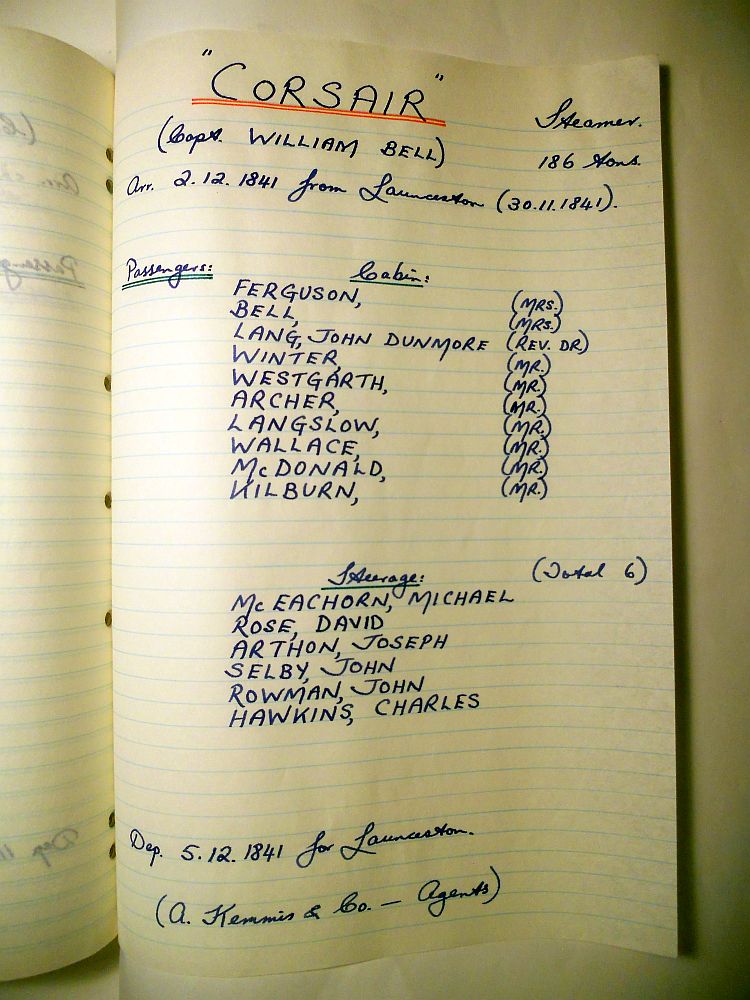 "CORSAIR"
Steamer.
(Capt. WILLIAM BELL)
186 tons.
Arr. 2.12.1841 from Launceston (30.11.1841).
Passengers: Cabin:
FERGUSON, (MRS.)
BELL, (MRS.)
LANG, JOHN DUNMORE (REV. DR)
WINTER, (MR.)
WESTGARTH, (MR.)
ARCHER, (MR.)
LANGSLOW, (MR.)
WALLACE, (MR.)
McDONALD, (MR.)
KILBURN, (MR.)
Steerage: (Total 6)
McEACHORN, MICHAEL
ROSE, DAVID
ARTHON, JOSEPH
SELBY, JOHN
ROWMAN, JOHN
HAWKINS, CHARLES
Dep. 5.12.1841 for Launceston.
(A. Kemmis & Co. — Agents)